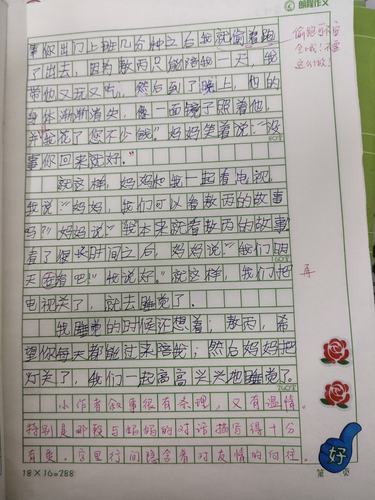 朗程作文
事你出门上班几分钟之后我就偷偷跑
了出去,因为敖丙只能陪我一天,我
带他又玩又吃,然后到了晚上,他的
身体渐渐消失,像一面镜子照着他,
并我说了您不少钱。”妈妈笑着说:“没
事你回来就好。”
就这样,妈妈和我一起看电视,
我说:“妈妈,我们可以看敖丙的故事
吗?”妈妈说:“我本来就看敖丙的故事
看了很长时间之后,妈妈说:“我们明
天再看吧!”我说好。”就这样,我们把
电视关了,就去睡觉了。
我睡觉的时候还想着;敖丙,希
望你每天都能过来陪我;然后妈妈把
灯关了,我们一起高高兴兴地睡觉了。
偷跑可不安
全哦!不要
这么做!
再
小作者叙事很有条理,又有温情。
特别是那段与妈妈的对话描写得十分
有爱。字里行间隐含着对友情的向往。
18×16=288
第 页
好